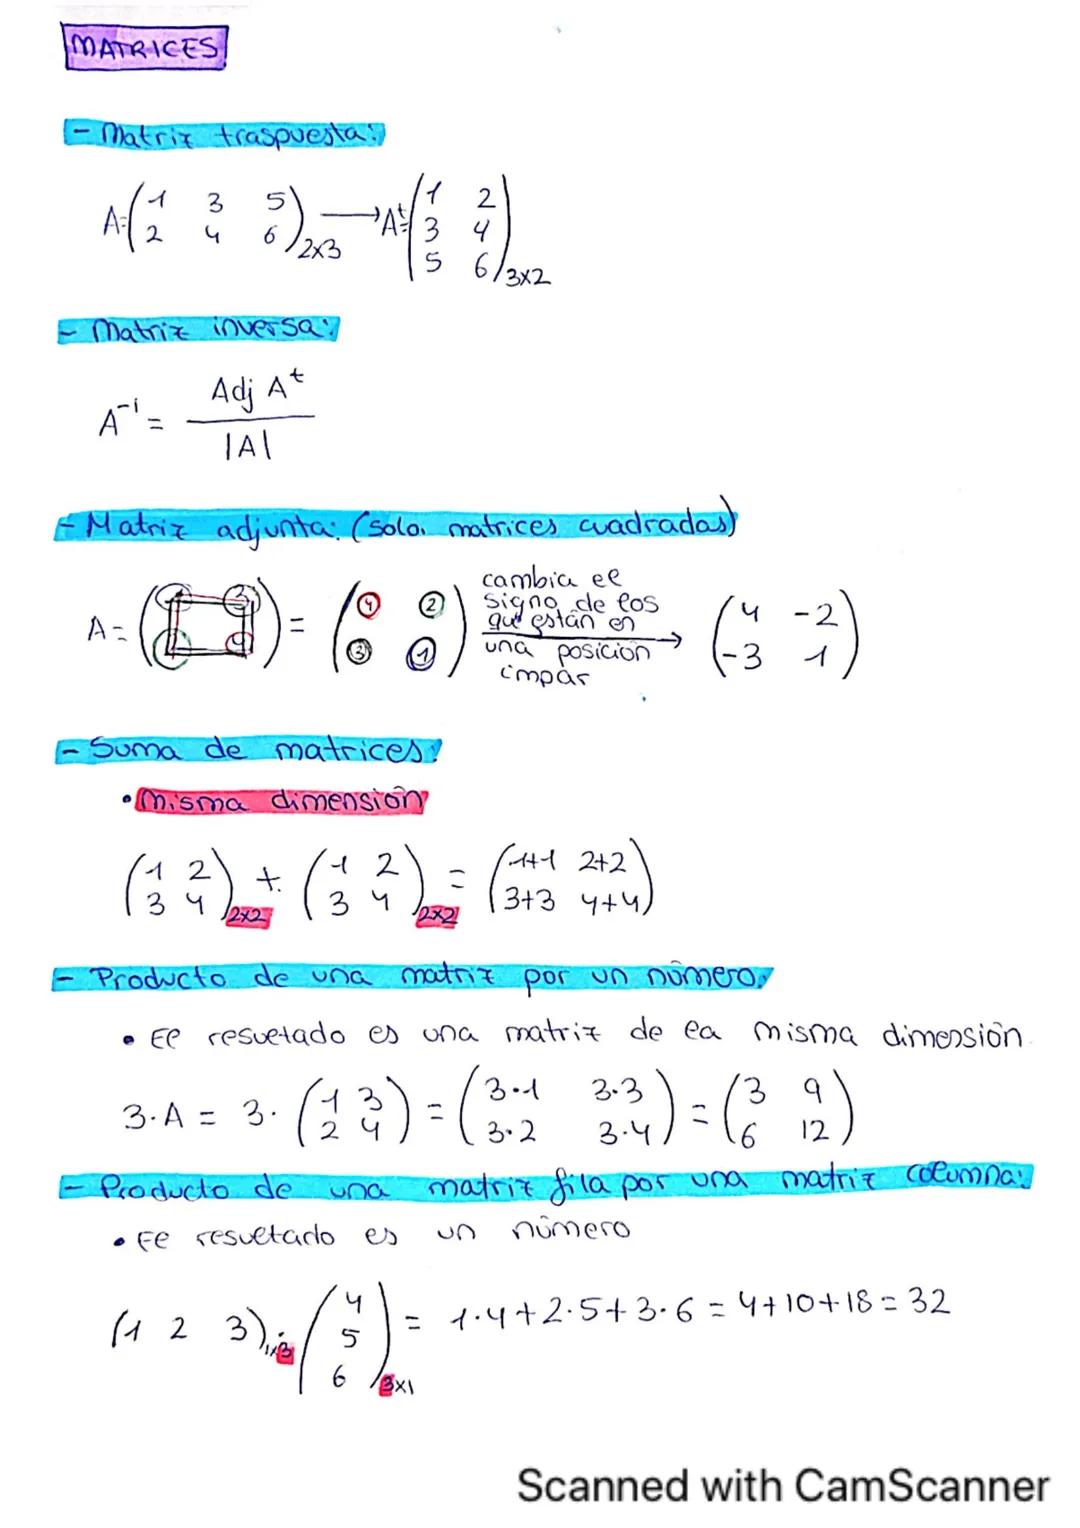 MATRICES
- Matriz traspuesta:
A=(1 3 5
2 4 6)2x3 → Aᵗ=(1 2
3 4
5 6)3x2
- Matriz inversa:
A⁻¹ = Adj Aᵗ
|A|
- Matriz adjunta: (solo matrices cuadradas)
A= ( 1 3
2 4 ) = ( 4 2
3 1 ) cambia el
signo de los
que están en
una posición
impar → ( 4 -2
-3 1 )
- Suma de matrices:
• Misma dimensión
(1 2
3 4)2x2 + (1 2
3 4)2x2 = (1+1 2+2
3+3 4+4)
- Producto de una matriz por un número:
• El resultado es una matriz de la misma dimensión
3·A = 3·(1 3
2 4) = (3·1 3·3
3·2 3·4) = (3 9
6 12)
- Producto de una matriz fila por una matriz columna:
• El resultado es un número
(1 2 3)1x3 · (4
5
6)3x1 = 1·4+2·5+3·6 = 4+10+18 = 32
Scanned with CamScanner